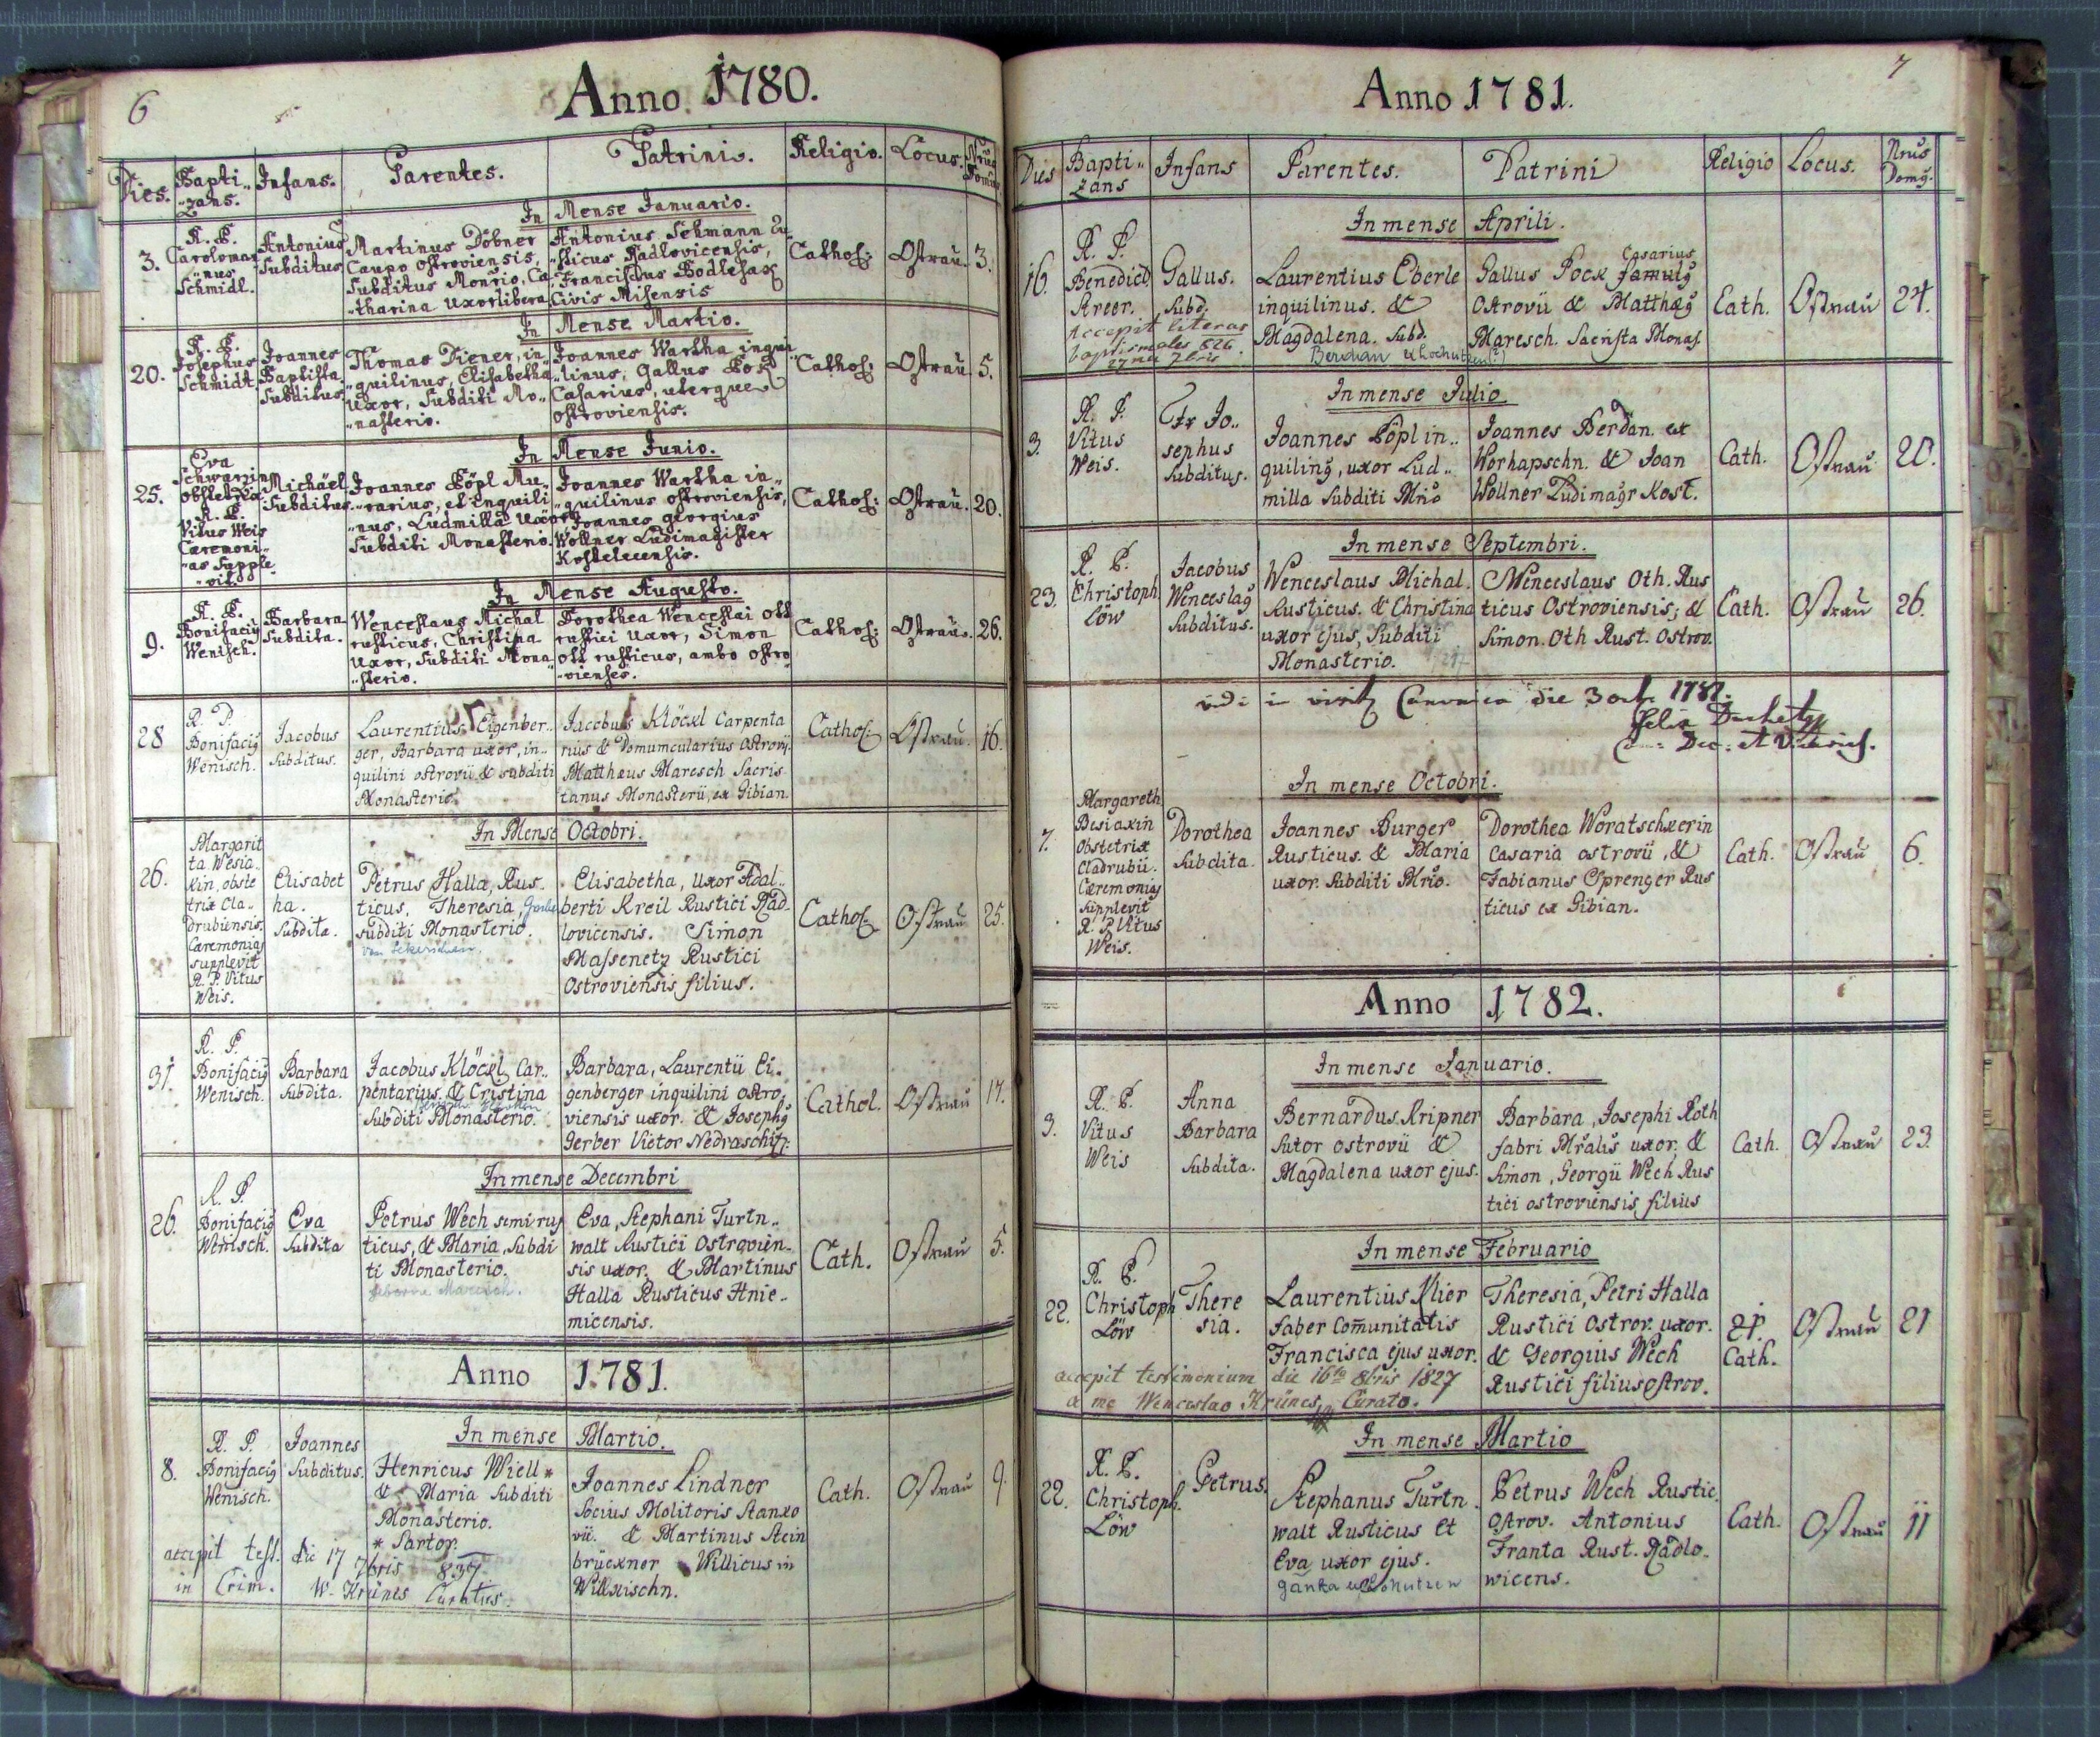 6
Anno 1780.
Dies.
Bapti„
„zans.
Infans.
Parentes.
Patrini.
Religio.
Locus.
Nrus
Domus
In Mense Januario.
3.
R. P.
Caroloman
„nus
Schmidl.
Antonius
Subditus
Martinus Döbner
Caupo Ostroviensis,
Subditus Monrio, Ca
„tharina uxor libera
Antonius Sehmann Ru
„sticus Radlovicensis,
Franciscus Podlesax
Civis Misensis
Cathol:
Ostrau.
3.
In Mense Martio.
20.
R. P.
Josephus
Schmidt.
Joannes
Baptista
Subditus
Thomas Diener, in„
„quilinus, Elisabetha
uxor, Subditi Mo„
„nasterio.
Joannes Wartha inqui
„linus, Gallus Pox
Casarius, uterque
Ostroviensis.
Cathol:
Ostrau.
5.
In Mense Junio.
25.
Eva
Schwarzin
obstetrix
R. P.
Vitus Weis
Cæremoni„
„as Supple„
„vit.
Michäel
Subditus.
Joannes Pöpl Mu„
„rarius, et inquili
„nus, Ludmilla uxor
Subditi Monasterio.
Joannes Wartha in„
„quilinus ostroviensis,
Joannes georgius
Wollner Ludimagister
Kostelecensis.
Cathol:
Ostrau.
20.
In Mense Augusto.
9.
R. P.
Bonifacig
Wenisch.
Barbara
Subdita.
Wenceslaus Michal
rusticus, Christina
uxor, Subditi Mona„
„sterio.
Dorothea Wenceslai Ott
rustici uxor, Simon
Ott rusticus, ambo ostro
„vienses.
Cathol:
Ostrau.
26.
28
R. P.
Bonifacig
Wenisch.
Jacobus
Subditus.
Laurentius Eigenber..
ger, Barbara uxor, in..
quilini ostrovii & subditi
Monasterio.
Jacobus Klöckl Carpenta
rius & Domumcularius Ostrovy.
Matthæus Maresch Sacris
tanus Monasterii, ex Gibian.
Cathol.
Ostrau.
16.
In Mense Octobri.
26.
Margarit
ta Wesia..
xin, obste
trix Cla..
drubiensis.
Cæremonias
supplevit
R. P. Vitus
Weis.
Elisabet
ha.
Subdita.
Petrus Halla, Rus.
ticus, Theresia,
subditi Monasterio.
Elisabetha, Uxor Adal..
berti Kreil Rustici Rad
lovicensis. Simon
Massenetz Rustici
Ostroviensis filius.
Cathol.
Ostrau
25.
31.
R. P.
Bonifacig
Wenisch.
Barbara
Subdita.
Jacobus Klöckl Car..
pentarius & Cristina
Subditi Monasterio.
Barbara, Laurentii Ei..
genberger inquilini ostro,
viensis uxor. & Josephg
Gerber Vietor Nedraschitz.
Cathol.
Ostrau
17.
In mense Decembri
26.
R. P.
Bonifacig
Wenisch.
Eva
Subdita
Petrus Wech semi rus
ticus, & Maria, Subdi
ti Monasterio.
geborne Maresch.
Eva, Stephani Turtn..
walt Rustici Ostrovien..
sis uxor. & Martinus
Halla Rusticus Hnie..
micensis.
Cath.
Ostrau
5.
Anno 1781.
In mense Martio.
8.
R. P.
Bonifacig
Wenisch.
Joannes
Subditus.
Henricus Wiell *
& Maria Subditi
Monasterio.
* Sartor.
Joannes Lindner
Socius Molitoris Stanko
vii. & Martinus Stein
brückner Willicus in
Willkischn.
Cath.
Ostrau
9.
accepit test. die 17 7bris 837
in Crim. W. Krünes Curatus.
7
Anno 1781.
Dies
Bapti„
zans
Infans
Parentes.
Patrini
Religio
Locus.
Nrus
Domg.
In mense Aprili.
16.
R. P.
Benedict
Streer.
Gallus.
Subd.
Laurentius Eberle
inquilinus. &
Magdalena. Subd.
Gallus Pock Casarius
famulg
Ostrovii & Matthæg
Maresch. Sacrista Monas.
Cath.
Ostrau
24.
Accepit literas
baptismales 826
27ma 7bris
In mense Julio
3.
R. P.
Vitus
Weis.
Fr Jo..
sephus
Subditus.
Joannes Pöpl in..
quiling, uxor Lud..
milla Subditi Mrio
Joannes Berdan. ex
Worhapschn. & Joan
Wollner Ludimagr Kost.
Cath.
Ostrau
20.
In mense Septembri.
23.
R. P.
Christoph
Löw
Jacobus
Wenceslag
Subditus.
Wenceslaus Michal.
Rusticus. & Christina
uxor ejus, Subditi
Monasterio.
Wenceslaus Oth. Rus
ticus Ostroviensis; &
Simon. Oth Rust. Ostrov.
Cath.
Ostrau
26.
vidi in visit Canonica die 3 oct. 1781.
Felix
Dec: et
In mense Octobri.
7.
Margareth
Besiaxin
Obstetrix
Cladrubii.
Cæremonias
supplevit
R. P. Vitus
Weis.
Dorothea
Subdita.
Joannes Burger
Rusticus. & Maria
uxor. Subditi Mrio.
Dorothea Woratschxerin
Casaria ostrovii, &
Fabianus Sprenger Rus
ticus ex Gibian.
Cath.
Ostrau
6.
Anno 1782.
In mense Januario.
3.
R. P.
Vitus
Weis
Anna
Barbara
Subdita.
Bernardus Kripner
Sutor ostrovii &
Magdalena uxor ejus.
Barbara, Josephi Roth
fabri Mralis uxor, &
Simon, Georgii Wech Rus
tici ostroviensis filius
Cath.
Ostrau
23.
In mense Februario
22.
R. P.
Christoph
Löw
There
sia.
Laurentius Klier
Faber Comunitatis
Francisca ejus uxor.
Theresia, Petri Halla
Rustici Ostrov. uxor.
& Georgius Wech
Rustici filius Ostrov.
21.
Cath.
Ostrau
21
accepit testimonium die 16ta 8bris 1827
a me Wenceslao Krünes, Curato.
In mense Martio
22.
R. P.
Christoph.
Löw
Petrus.
Stephanus Turtn.
walt Rusticus et
Eva uxor ejus.
Petrus Wech Rustic.
Ostrov. Antonius
Franta Rust. Radlo..
wicens.
Cath.
Ostrau
11